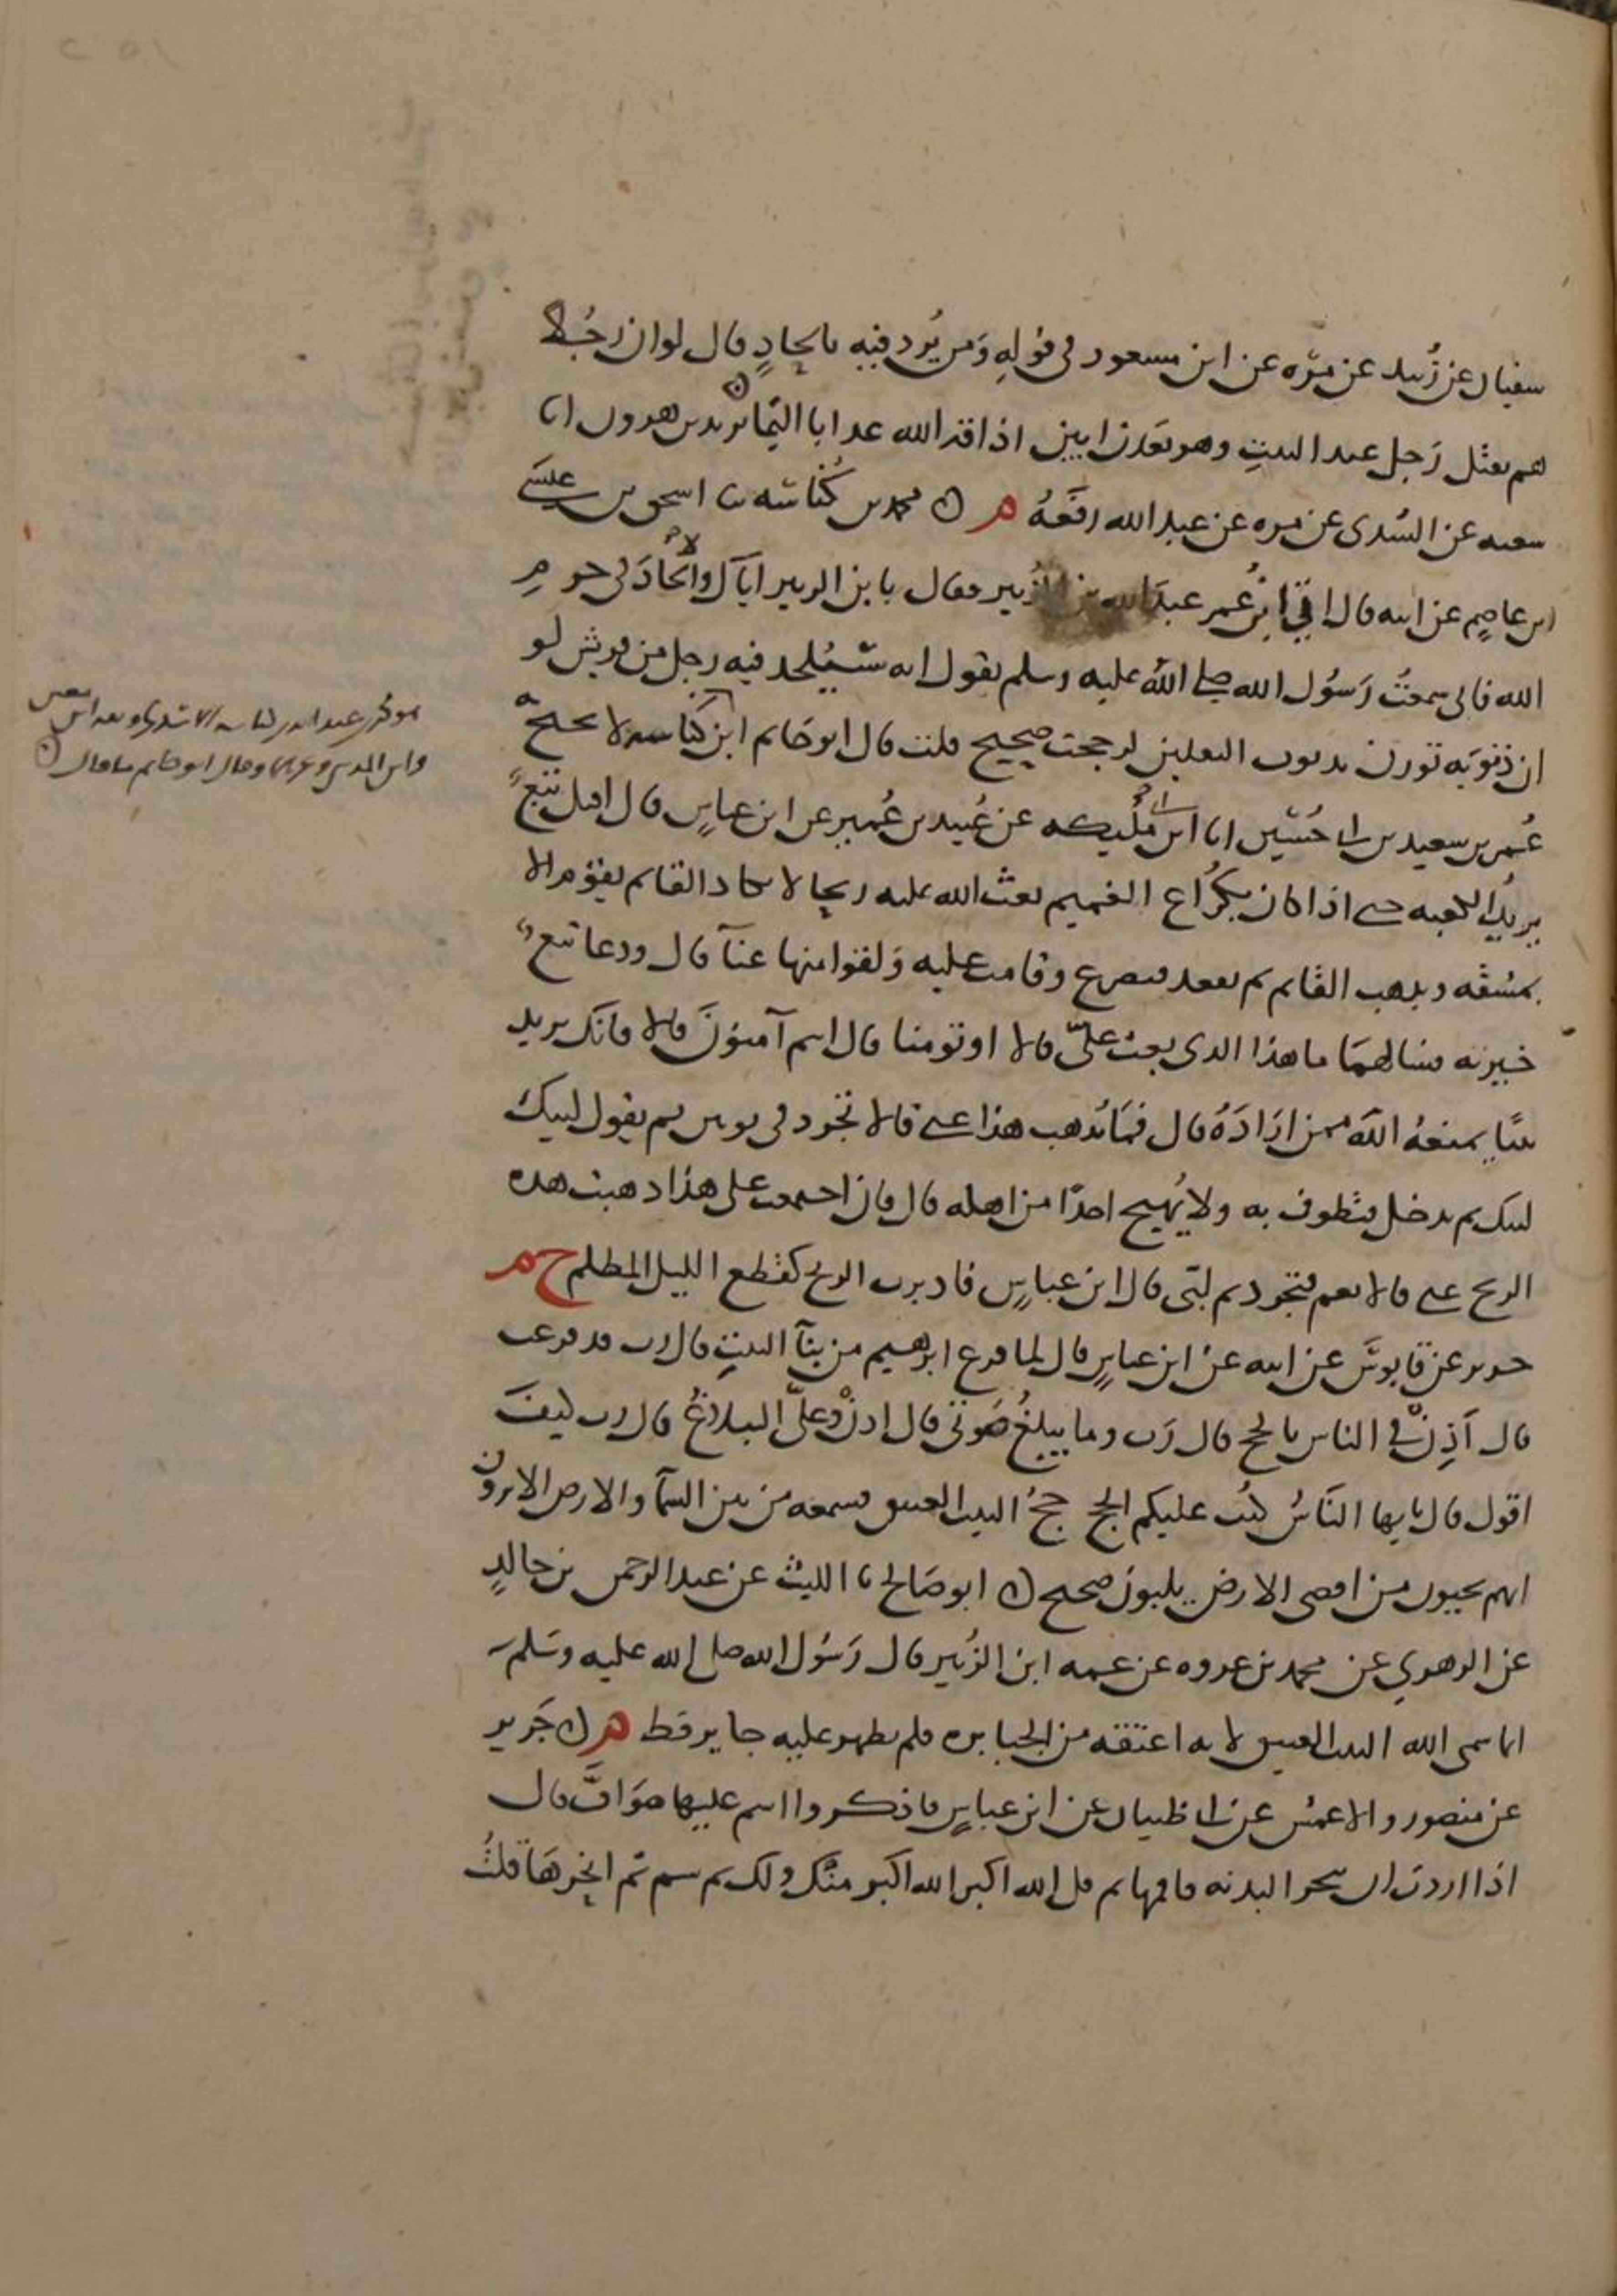 سفيان عن زبيد عن مرة عن ابن مسعود في قوله ومن يرد فيه بالحاد قال لو ان رجلا
هم بقتل رجل عند البيت وهو بعدن ابين اذاقه الله عذابا اليما ں يزيد بن هرون انا
شعبه عن السدي عن مره عن عبد الله رفعه م ں محمد بن كناسه نا اسحق بن عيسى
ابن عاصم عن ابيه قال اتى ابن عمر عبد الله بن الزبير فقال يا بن الزبير اياك والالحاد في حرم
الله فاني سمعت رسول الله صلى الله عليه وسلم يقول انه سيلحد فيه رجل من قريش لو
ان ذنوبه توزن بذنوب الثقلين لرجحت صحيح قلت قال ابو حاتم ابن كناسه لا يحتج به
عمر بن سعيد بن ابي حسين انا ابن ابي مليكه عن عبيد بن عمير عن ابن عباس قال اقبل تبع
يريد الكعبه حتى اذا كان بكراع الغميم بعث الله عليه ريحا لا يكاد القائم يقوم الا
بمشقه ويذهب القائم ثم يقعد فيصرع وقامت عليه ولقوا منها عنآ قال ودعا تبع
حبريه فسالهما ما هذا الذي بعث علي قالا او تومنا قال انتم آمنون قالا فانك تريد
بيتا يمنعه الله ممن اراده قال فما يذهب هذا عني قالا تجرد في ثوبين ثم يقول لبيك
لبيك ثم تدخل فتطوف به ولا يهيج احدا من اهله قال فان اجمعت على هذا ذهبت هذه
الريح عني قالا نعم فتجرد ثم لبى قال ابن عباس فادبرت الريح كقطع الليل المظلم خ م
جرير عن قابوس عن ابيه عن ابن عباس قال لما فرغ ابرهيم من بنآ البيت قال رب قد فرغت
قال آذن في الناس بالحج قال رب وما يبلغ صوتي قال اذن وعلي البلاغ قال رب كيف
اقول قال يايها الناس كتب عليكم الحج حج البيت العتيق فسمعه من بين السمآ والارض الا ترون
انهم يجيون من اقصى الارض يلبون صحيح ں ابو صالح نا الليث عن عبد الرحمن بن خالد
عن الزهري عن محمد بن عروه عن عمه ابن الزبير قال رسول الله صلى الله عليه وسلم
انما سمى الله البيت العتيق لانه اعتقه من الجبابره فلم يظهر عليه جابر قط م ں جرير
عن منصور والاعمش عن ابي ظبيان عن ابن عباس فاذكروا اسم عليها صواف قال
اذا اردت ان تنحر البدنه فاقمها ثم قل الله اكبر الله اكبر منك ولك ثم سم ثم انحرها قلت
هو محمد بن عبد الله بن كناسه الاسدي وثقه ابن معين
وابن المديني وغيرهما وقال ابو حاتم ما قال ں